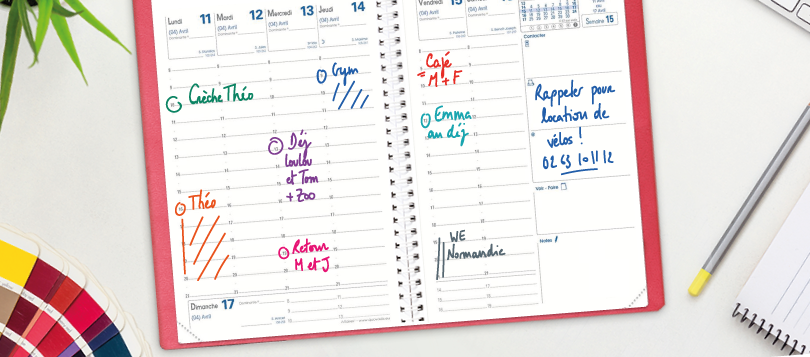 Lundi 11
(04) Avril
Mardi 12
(04) Avril
Mercredi 13
(04) Avril
Jeudi 14
(04) Avril
Crèche Théo
Gym
Déj
loulou
et Tom
+ Zoo
Théo
Retour
M et J
Dimanche 17
(04) Avril
Vendredi 15
(04) Avril
Café
M + F
Emma
au déj
WE
Normandie
Semaine 15
Contacter
Rappeler pour
location de
vélos !
02 63 10 11 12
Voir - Faire
Notes